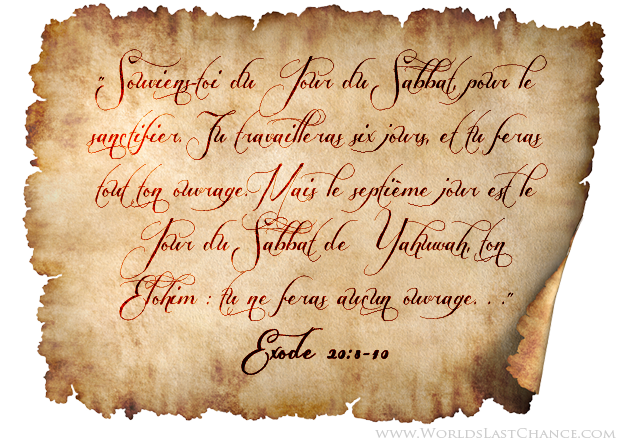 "Souviens-toi du Jour du Sabbat, pour le
sanctifier. Tu travailleras six jours, et tu feras
tout ton ouvrage. Mais le septième jour est le
Jour du Sabbat de Yahuwah, ton
Elohim : tu ne feras aucun ouvrage. . ."
Exode 20:8-10
www.WorldsLastChance.com